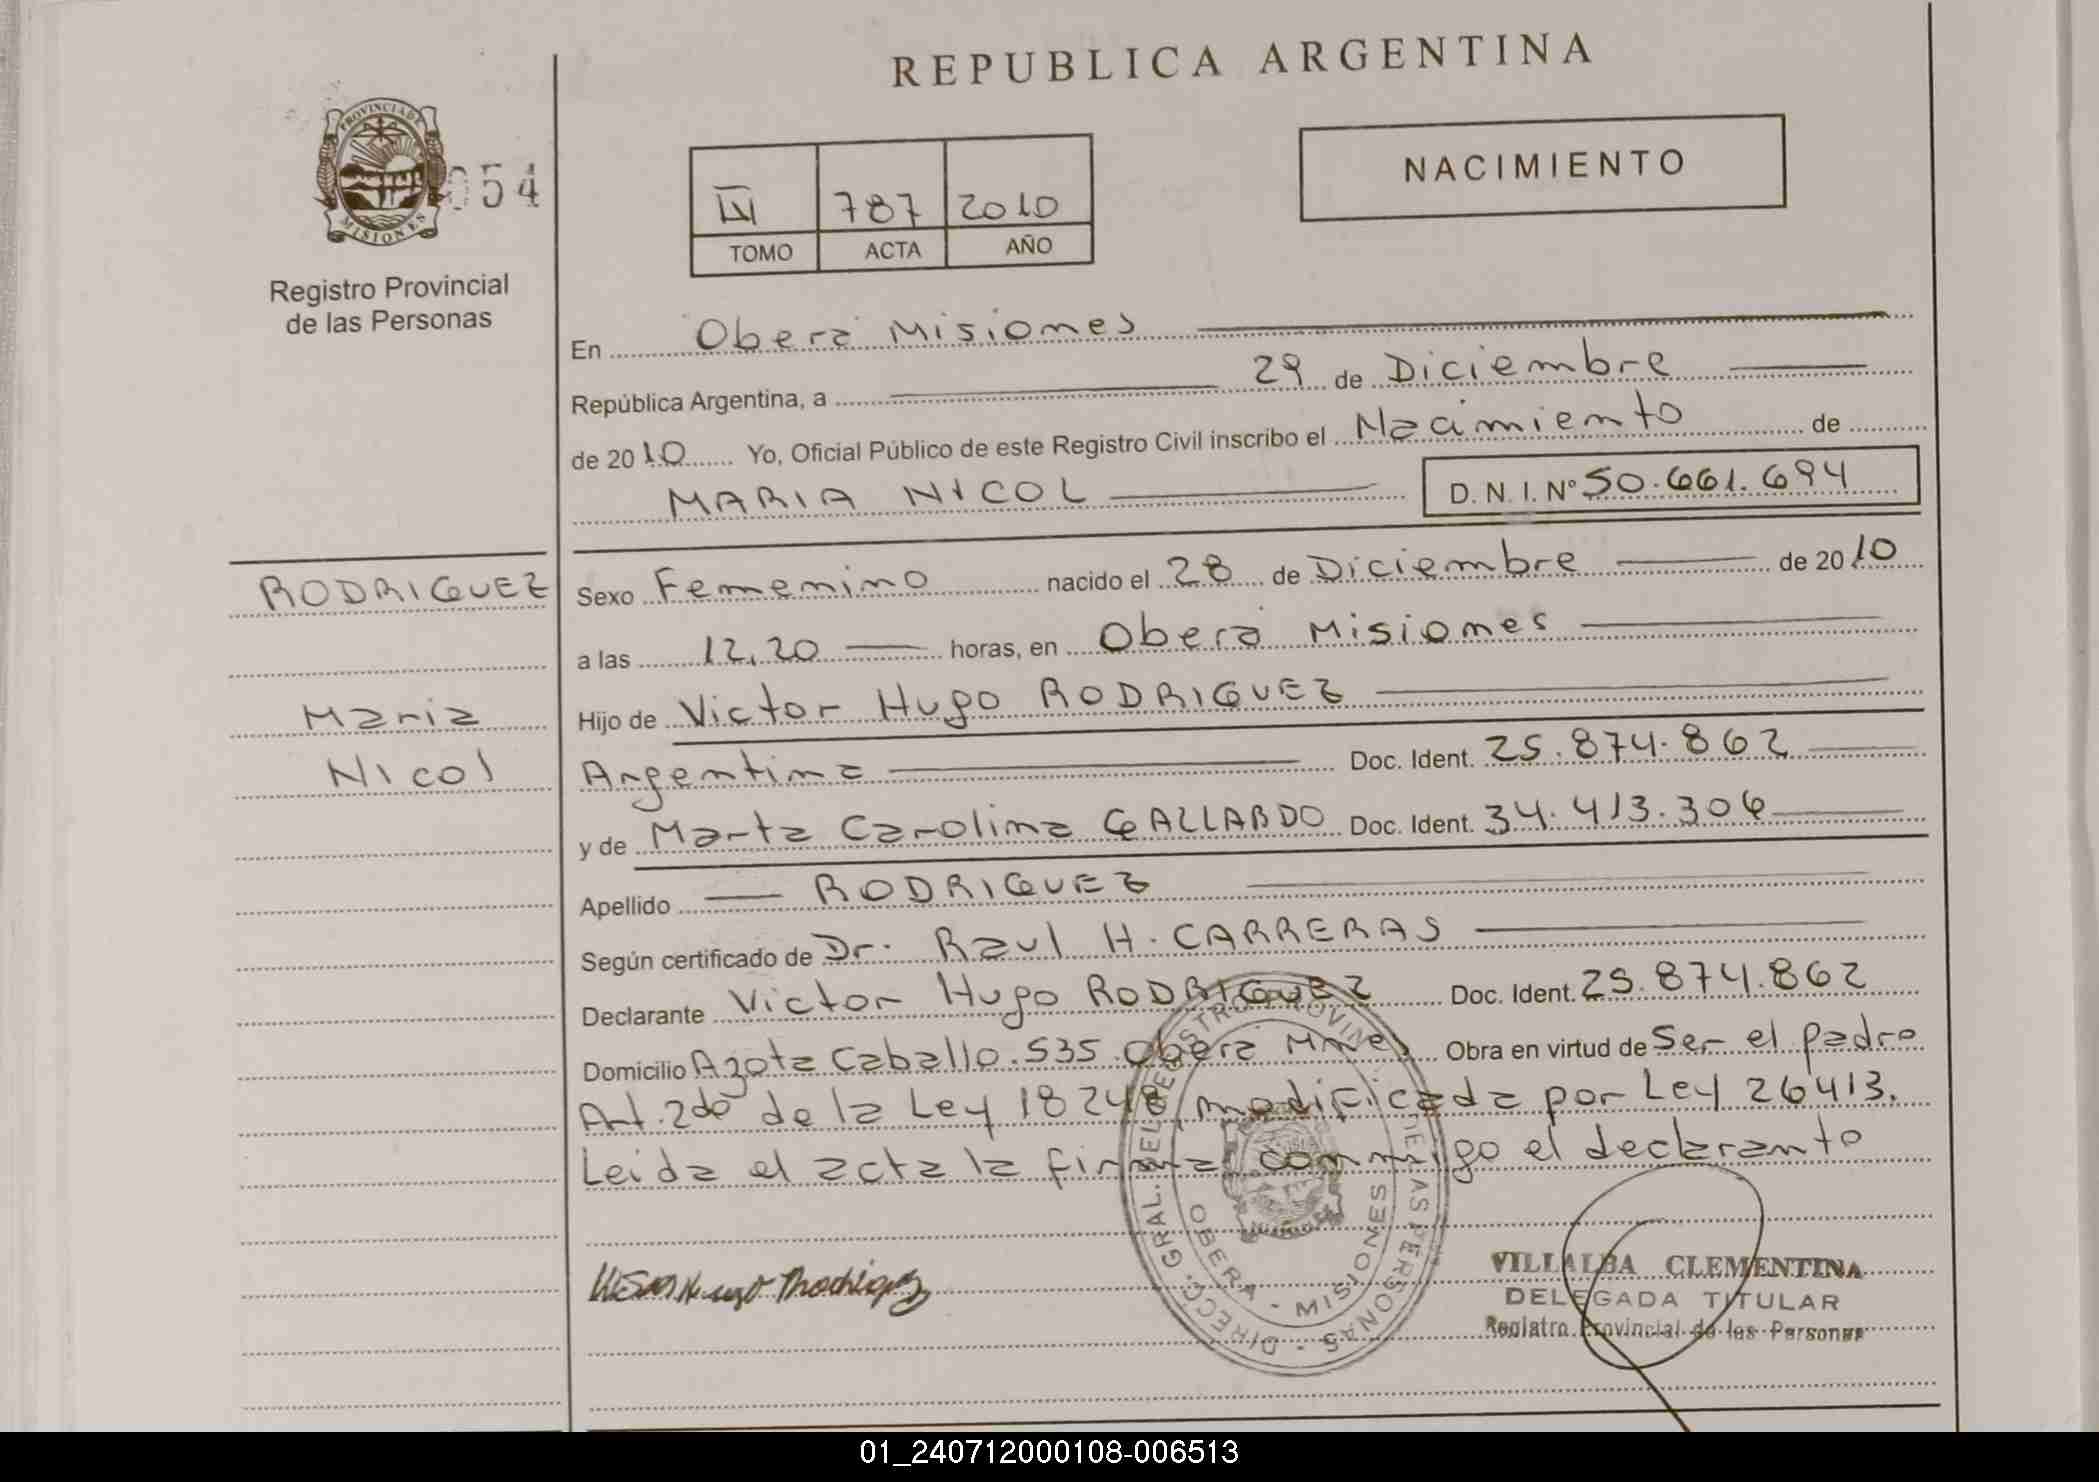 REPUBLICA ARGENTINA
PROVINCIA DE
MISIONES
054
Registro Provincial
de las Personas
IV 787 2010
TOMO ACTA AÑO
NACIMIENTO
En Obera Misiones
República Argentina, a 29 de Diciembre
de 2010 Yo, Oficial Público de este Registro Civil inscribo el Nacimiento de
MARIA NICOL D. N. I. Nº 50.661.694
RODRIGUEZ
Maria
Nicol
Sexo Femenino nacido el 28 de Diciembre de 2010
a las 12,20 horas, en Oberá Misiones
Hijo de Victor Hugo RODRIGUEZ
Argentina Doc. Ident. 25.874.862
y de Marta Carolina GALLARDO Doc. Ident. 34.413.306
Apellido RODRIGUEZ
Según certificado de Dr. Raul H. CARRERAS
Declarante Victor Hugo RODRIGUEZ Doc. Ident. 25.874.862
Domicilio Azota Caballo.535.Obera Mnes Obra en virtud de Ser el padre
Art.2do de la Ley 18248 modificada por Ley 26413.
Leida el acta la firma conmigo el declarante
DIRECC. GRAL. DEL REGISTRO PROVIN DE LAS PERSONAS
OBERA - MISIONES
VILLALBA CLEMENTINA
DELEGADA TITULAR
Registro Provincial de las Personas
01_240712000108-006513